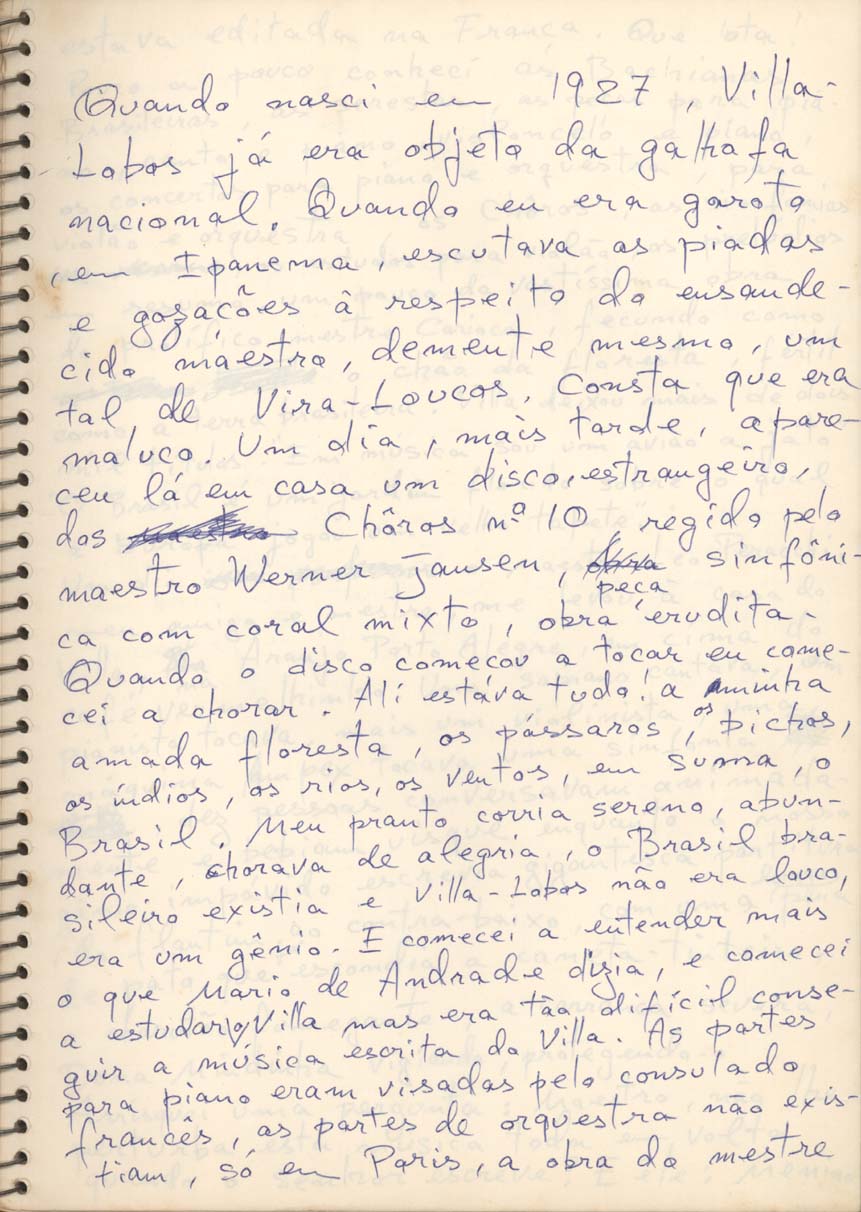 Quando nasci em 1927, Villa-
Lobos já era objeto da galhofa
nacional. Quando eu era garoto
em Ipanema, escutava as piadas
e gozações à respeito do ensande-
cido maestro, demente mesmo, um
tal de Vira-Loucos. Consta que era
maluco. Um dia, mais tarde, apare-
ceu lá em casa um disco, estrangeiro,
dos Chôros nº 10 regido pelo
maestro Werner Jansen, peça sinfôni-
ca com coral mixto, obra erudita.
Quando o disco começou a tocar eu come-
cei a chorar. Alí estáva tudo! a minha
amada floresta, os pássaros, os bichos,
os índios, os rios, os ventos, em suma, o
Brasil. Meu pranto corria sereno, abun-
dante, chorava de alegria, o Brasil bra-
sileiro existia e Villa-Lobos não era louco,
era um gênio. E comecei a entender mais
o que Mario de Andrade dizia, e comecei
a estudar o Villa mas era tão difícil conse-
guir a música escrita do Villa. As partes
para piano eram visadas pelo consulado
francês, as partes de orquestra não exis-
tiam, só em Paris, a obra do mestre